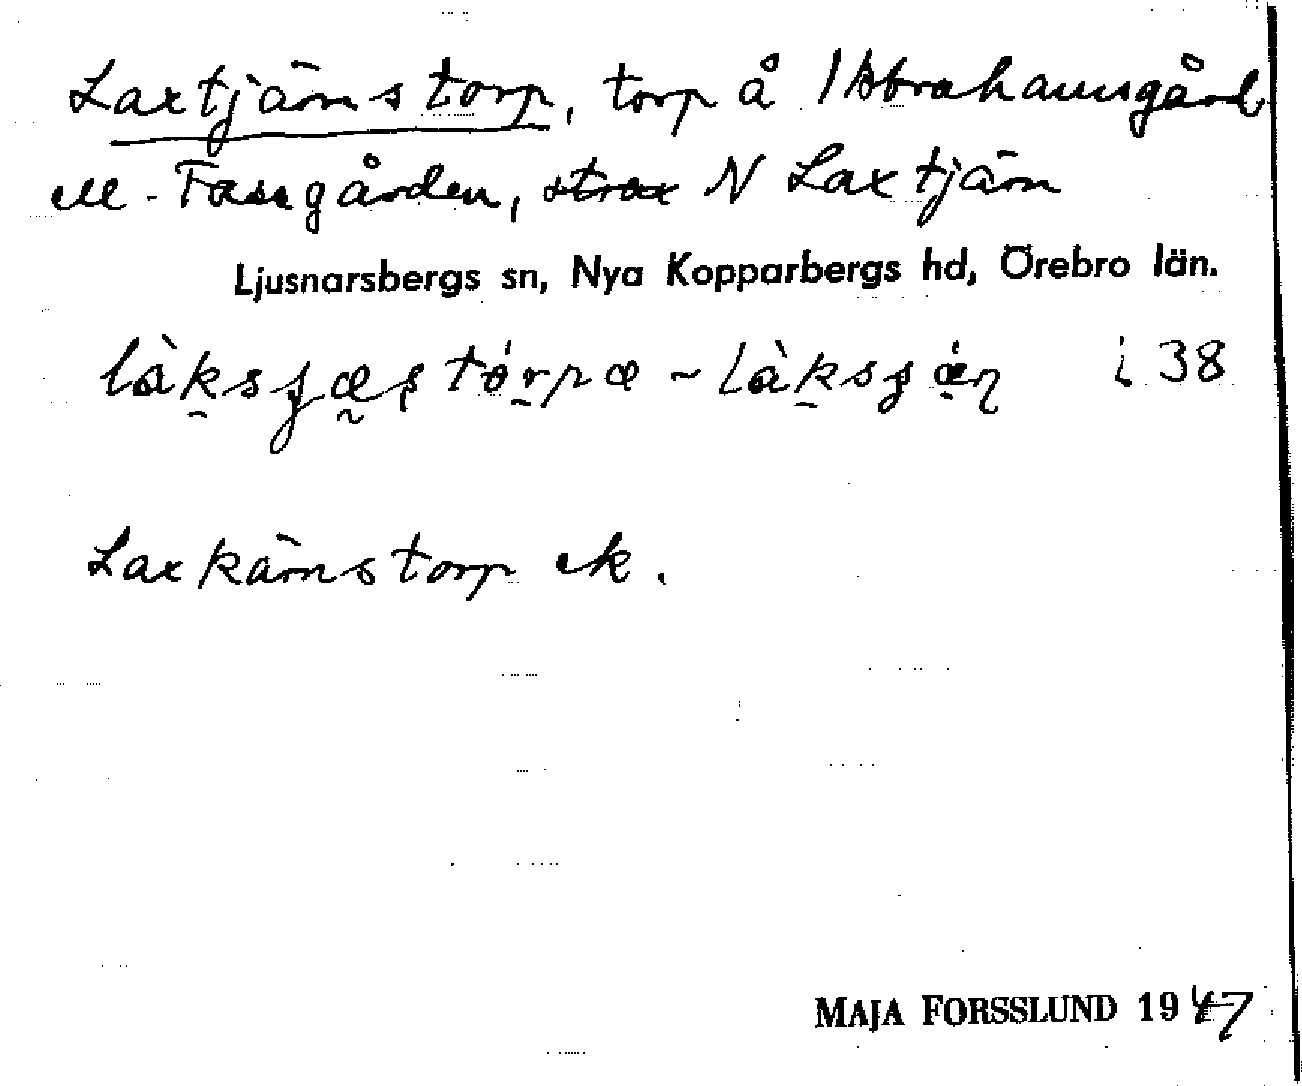 Laxtjärnstorp, torp å 1 Abrahamsgård
ell. Fassgården, strax N Laxtjärn
Ljusnarsbergs sn, Nya Kopparbergs hd, Örebro län.
i 38
Laxkärnstorp ek.
MAJA FORSSLUND 1947